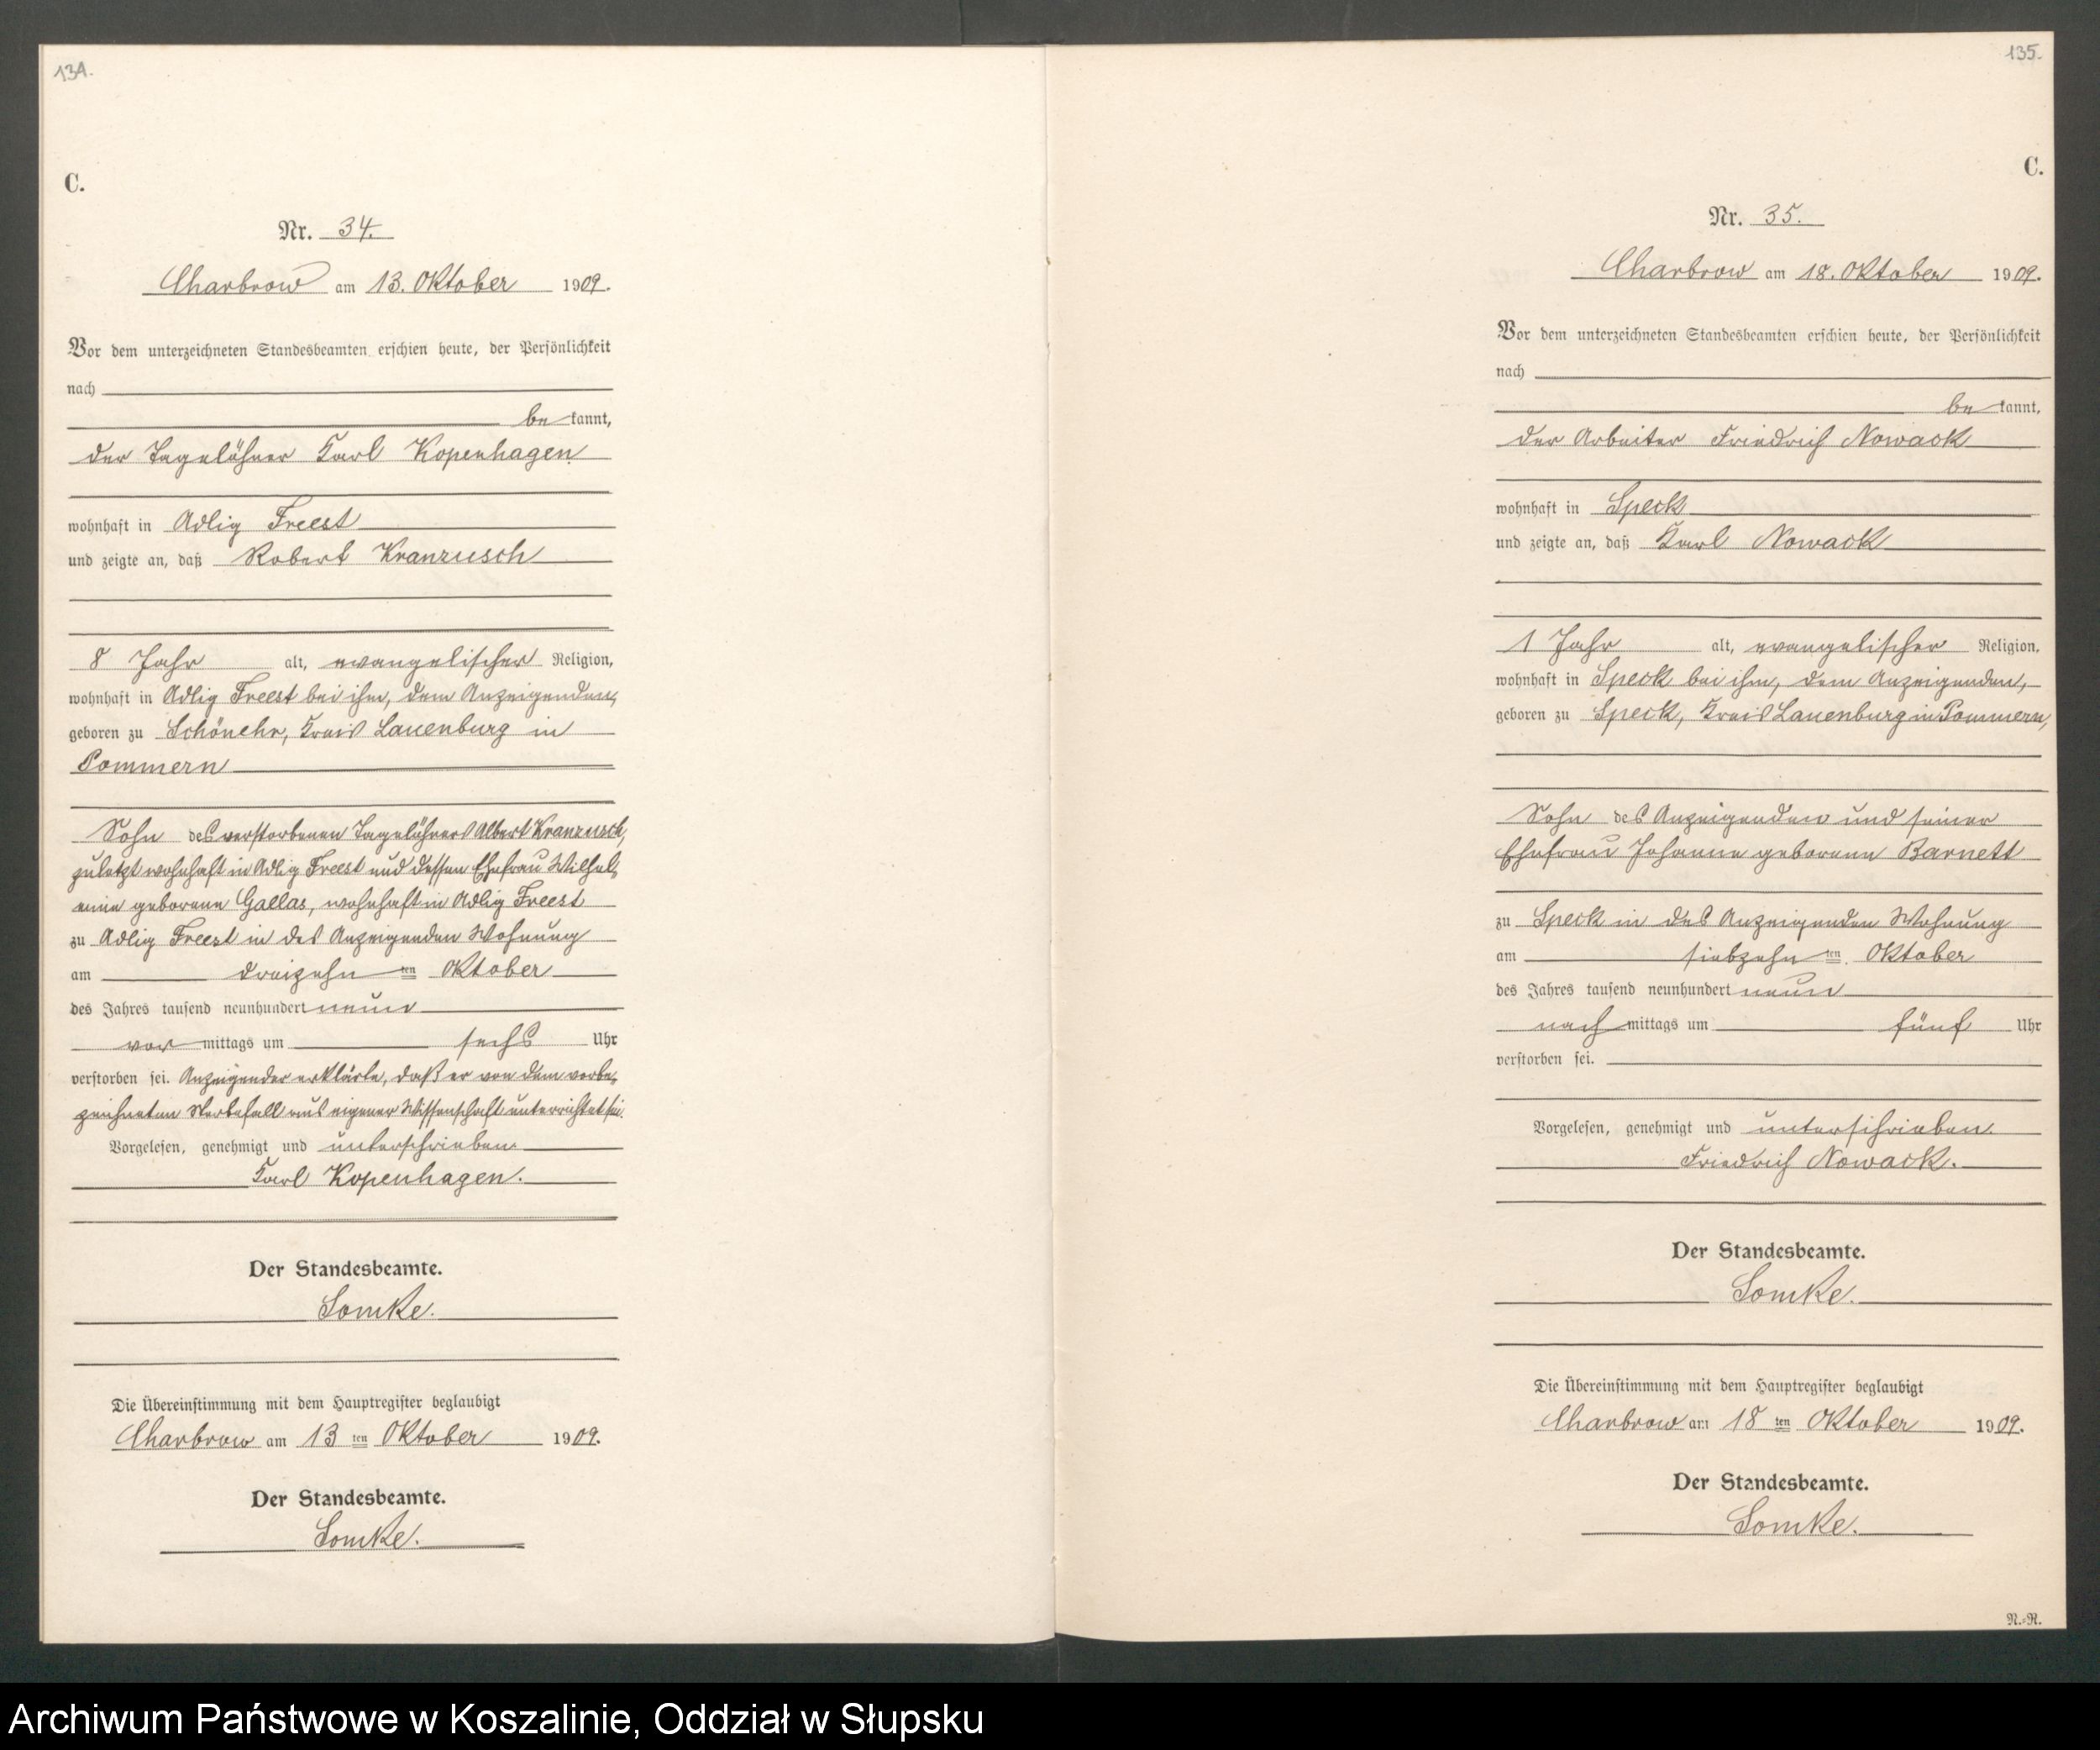 134.
C.
Nr. 34.
Charbrow am 13. Oktober 1909.
Vor dem unterzeichneten Standesbeamten erschien heute, der Persönlichkeit
nach
be kannt,
der Tagelöhner Karl Kopenhagen
wohnhaft in Adlig Freest
und zeigte an, daß Robert Kranzusch
8 Jahr alt, evangelischer Religion,
wohnhaft in Adlig Freest bei ihm, dem Anzeigenden,
geboren zu Schönehr, Kreis Lauenburg in
Pommern
Sohn des verstorbenen Tagelöhners Albert Kranzusch,
zuletzt wohnhaft in Adlig Freest und dessen Ehefrau Wilhel,
mine geborene Gallas, wohnhaft in Adlig Freest
zu Adlig Freest in des Anzeigenden Wohnung
am dreizehn ten Oktober
des Jahres tausend neunhundert neun
vor mittags um sechs Uhr
verstorben sei. Anzeigender erklärte, daß er von dem vorbe,
zeichneten Sterbefall aus eigener Wissenschaft unterrichtet sei.
Vorgelesen, genehmigt und unterschrieben
Karl Kopenhagen.
Der Standesbeamte.
Lomke.
Die Übereinstimmung mit dem Hauptregister beglaubigt
Charbrow am 13 ten Oktober 1909.
Der Standesbeamte.
Lomke.
135.
C.
Nr. 35.
Charbrow am 18. Oktober 1909.
Vor dem unterzeichneten Standesbeamten erschien heute, der Persönlichkeit
nach
be kannt,
der Arbeiter Friedrich Nowack
wohnhaft in Speck
und zeigte an, daß Karl Nowack
1 Jahr alt, evangelischer Religion,
wohnhaft in Speck bei ihm, dem Anzeigenden,
geboren zu Speck, Kreis Lauenburg in Pommern,
Sohn des Anzeigenden und seiner
Ehefrau Johanne geborene Barnett
zu Speck in des Anzeigenden Wohnung
am siebzehn ten Oktober
des Jahres tausend neunhundert neun
nach mittags um fünf Uhr
verstorben sei.
Vorgelesen, genehmigt und unterschrieben.
Friedrich Nowack.
Der Standesbeamte.
Lomke.
Die Übereinstimmung mit dem Hauptregister beglaubigt
Charbrow am 18 ten Oktober 1909.
Der Standesbeamte.
Lomke.
N.=R.
Archiwum Państwowe w Koszalinie, Oddział w Słupsku